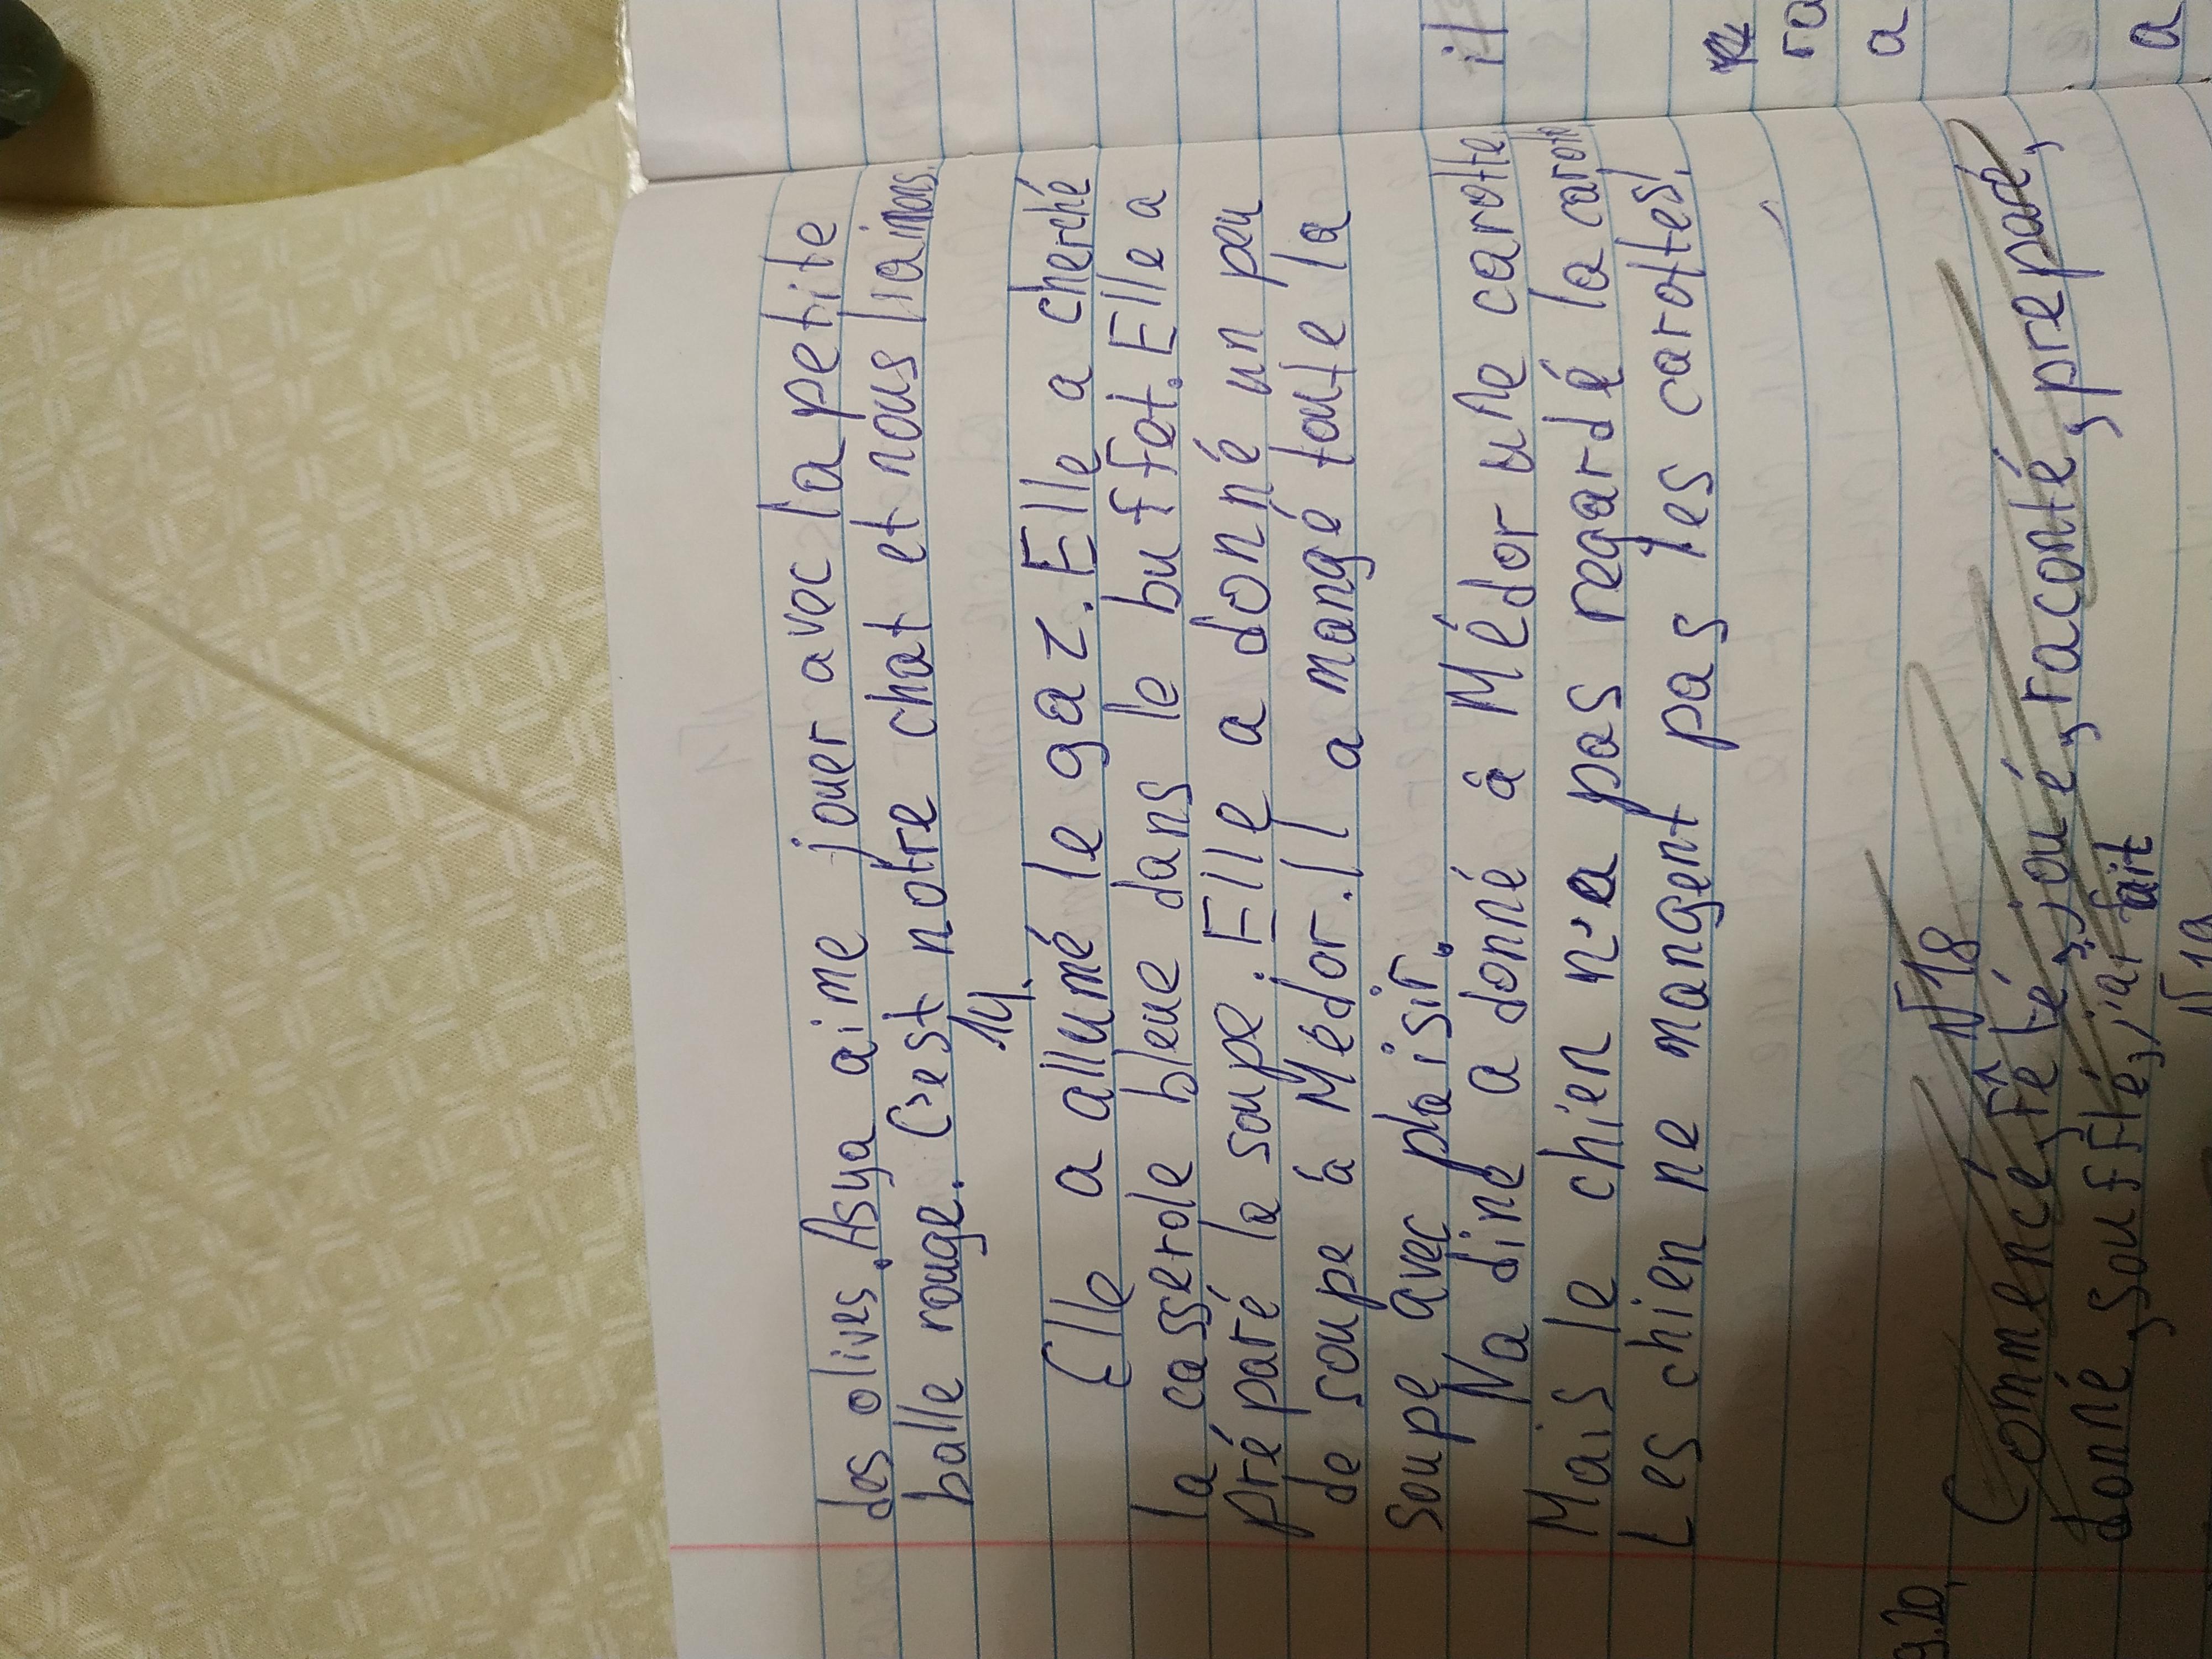 des olives. Asya aime jouer avec la petite
balle rouge. C'est notre chat et nous l'aimons.
14.
Elle a allumé le gaz. Elle a cherché
la casserole bleue dans le buffet. Elle a
préparé la soupe. Elle a donné un peu
de soupe à Médor. Il a mangé toute la
soupe avec plaisir.
Nadine a donné à Médor une carotte.
Mais le chien n'a pas regardé la carotte.
Les chien ne mangent pas les carottes!
N18
Commencé, fêté, joué, raconté, preparé,
donné, soufflé, fait
N19
il
ra
a
a